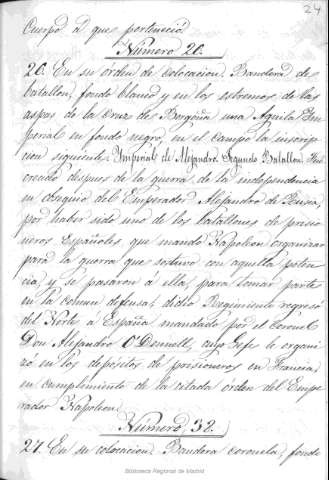 24
Cuerpo á que perteneció
Número 20.
20. En su órden de colocacion. Bandera de
batallon, fondo blanco y en los estremos de las
aspas de la Cruz de Borgoña una Aguila Im-
perial en fondo negro, en el campo la inscrip-
cion siguiente. Imperial de Alejandro Segundo Batallon
creado despues de la guerra de la independencia
en obsequio del Emperador Alejandro de Rusia,
por haber sido uno de los batallones de prisio-
neros Españoles que mandó Napoleon organizar
para la guerra que sostuvo con aquella poten-
cia, y se pasaron á ella, para tomar parte
en la comun defensa; dicho Regimiento regresó
del Norte á España mandado por el Coronel
Don Alejandro O'Donnell, cuyo Jefe le organi-
zó en los depósitos de prisioneros en Francia
en cumplimiento de la citada orden del Empe-
rador Napoleon.
Número 32.
27. En su colocacion. Bandera coronela, fondo
Biblioteca Regional de Madrid